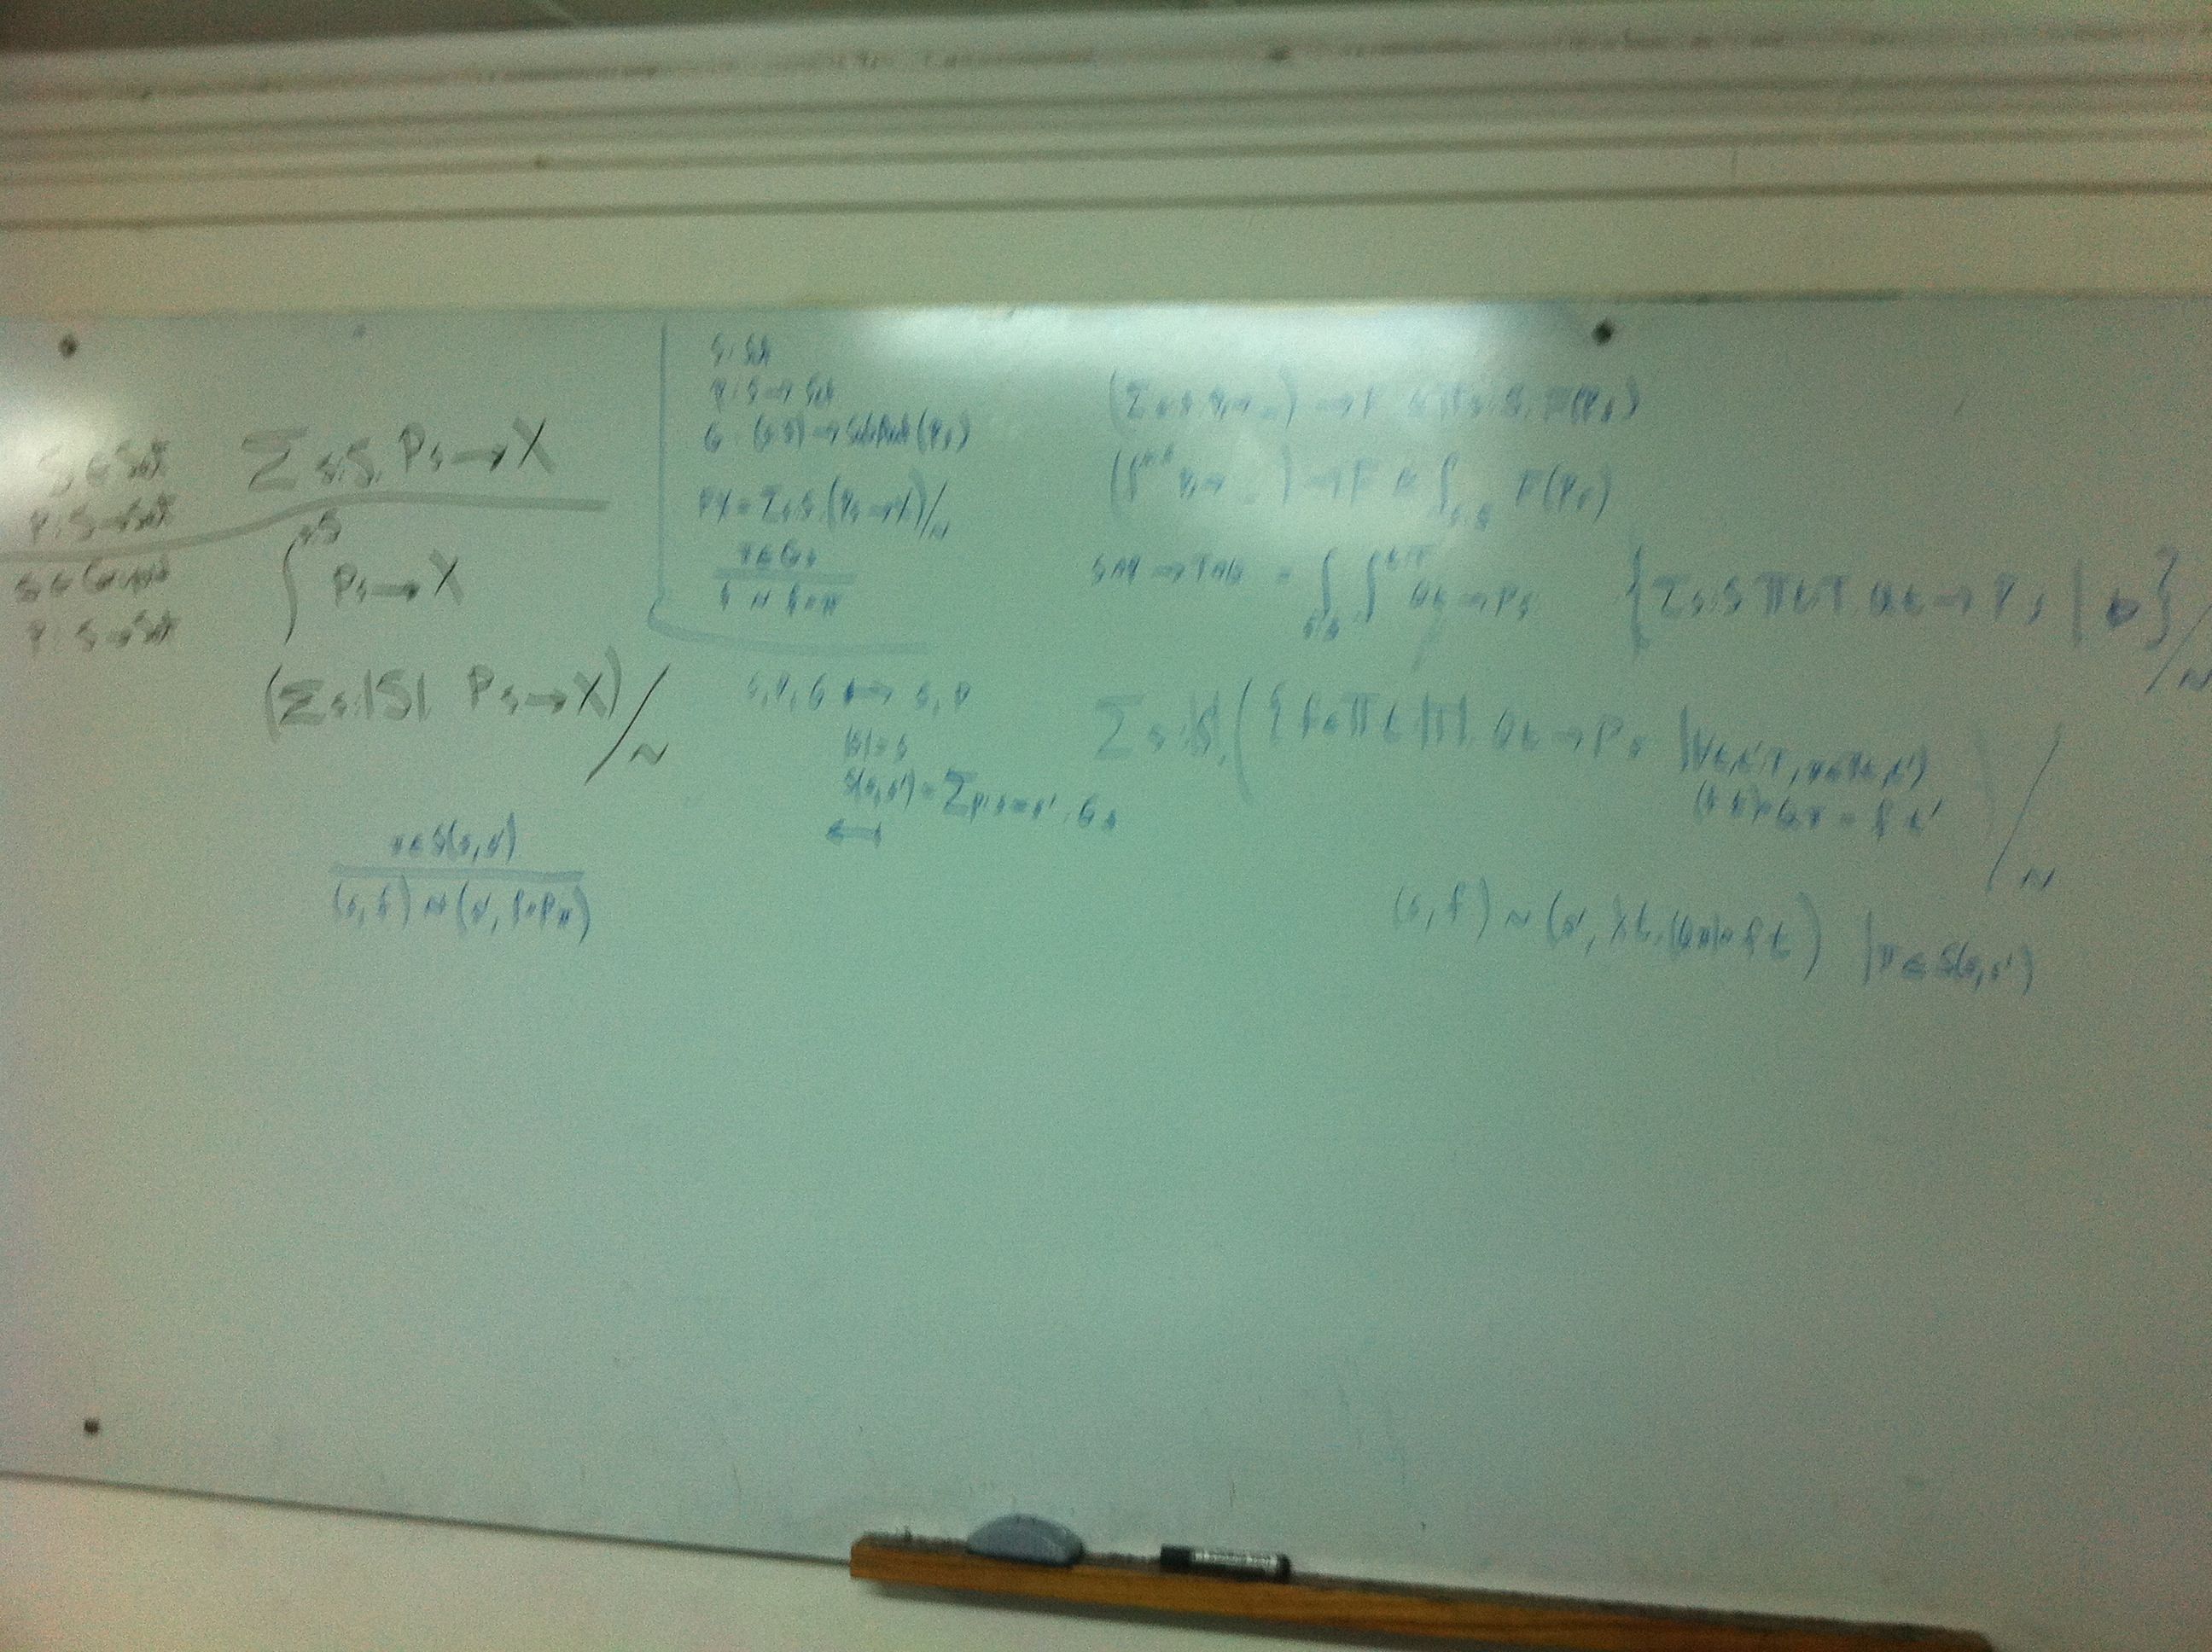 S ∈ Set
P : S → Set
S ∈ Groupoid
P : S → Set
Σ s:S. Ps → X
∫^{s:S} Ps → X
(Σ s:|S|. Ps → X)/~
π ∈ S(s,s')
(s,f) ~ (s', f∘Pπ)
S : Set
P : S → Set
G : (s:S) → SubAut(Ps)
FX = Σ s:S. (Ps → X)/~
π ∈ Gs
f ~ f∘π
S, P, G ↦ S, P
|S| = S
S(s,s') = Σ p:s=s'. Gs
(Σ s:S. Ps → _) → F ≅ Π s:S. F(Ps)
(∫^{s:S} Ps → _) → F ≅ ∫_{s:S} F(Ps)
= ∫_{s:S} ∫^{t:T} Qt → Ps
{Σ s:S Π t:T. Qt → Ps | }/~
Σ s:|S|. ({f ∈ Π t:|T|. Qt → Ps | ∀ t,t':T, π ∈ T(t,t')
(f t)∘Qπ = f t' )/~
(s,f) ~ (s', λt. (Qπ)∘f t) | π ∈ S(s,s')